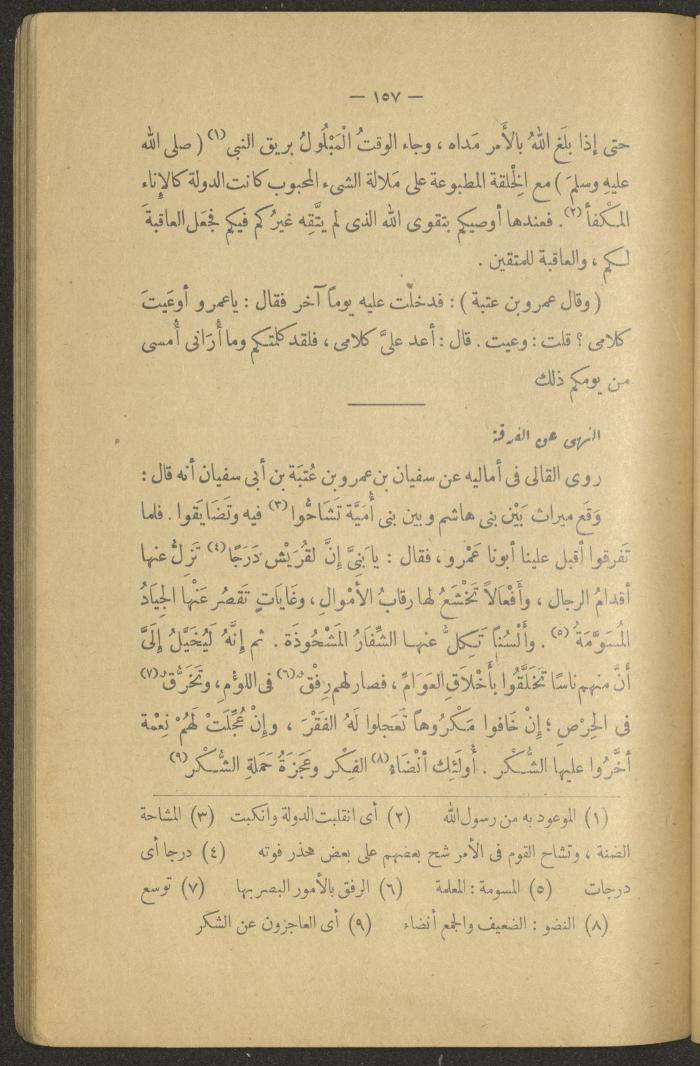 — ١٥٧ —
حتى إذا بلَغ اللهُ بالأَمر مَداه ، وجاء الوقتُ الْمَبْلُولُ بريق النبي (١) ( صلى الله
عليهِ وسلمَ ) مع الخِلقة المطبوعة على مَلالة الشىء المحبوب كانت الدولة كالإناء
المـكْفأ (٢) . فعندها أوصيكم بتقوى الله الذى لم يتَّقِه غيرُكم فيكم فجَعل العاقبةَ
لـكم ، والعاقبة للمتقين .
( وقال عمرو بن عتبة ) : فدخلت عليه يوماً آخر فقال : ياعمرو أوعَيتَ
كلامى ؟ قلت : وعيت . قال : أعد علىَّ كلامى ، فلقد كلمتـكم وما أُرَانى أُمسى
من يومكم ذلك
النهى عن الفرقة
روى القالى فى أماليه عن سفيان بن عمرو بن عُتبَة بن أبى سفيان أنه قال :
وَقَع ميراث بَيْن بنى هاشم وبين بنى أُمَيَّة تَشَاحُّوا (٣) فيه وتَضَايَقوا . فلما
تَفرقوا أقبل علينا أبونا عَمْرو ، فقال : يابَنِىَّ إِنَّ لقُرَيْش دَرَجًا (٤) تَزِلُّ عنها
أقدامُ الرجال ، وأَفْعَالاً تَخْشَعُ لها رقابُ الأمْوال ، وغَايَاتٍ تَقصُر عَنْها الجِيَادُ
المُسَوَّمَةُ (٥) . وأَلْسُنًا تَـكِلُّ عنهـا الشِّفَارُ المَشْحُوذَة . ثم إنَّهُ لَيُخَيَّلُ إلَىَّ
أَنَّ منهم ناسًا تَخَلَّقُوا بِأَخْلاَقِ العَوَامِّ ، فصار لهم رِفْقٌ (٦) فى اللؤْمِ ، وتَخَرُّقٌ (٧)
فى الحِرْصِ ؛ إنْ خَافوا مَـكْرُوهاً تَعَجلوا لَهُ الفَقْرَ ، وإنْ عُجِّلَتْ لَهُمْ نِعْمة
أخَّرُوا عليها الشُّـكْر . أُولَئِك أنْضَاء (٨) الفِـكْر وعَجَزَةُ حَمَلةِ الشُّـكْر (٩)
(١) الموعود به من رسول الله (٢) أى انقلبت الدولة وانكبت (٣) المشاحة
الضنة ، وتشاح القوم فى الأمر شح بعضهم على بعض هذر فوته (٤) درجا أى
درجات (٥) المسومة : المعلمة (٦) الرفق بالأمور البصر بها (٧) توسع
(٨) النضو : الضعيف والجمع أنضاء (٩) أى العاجزون عن الشكر